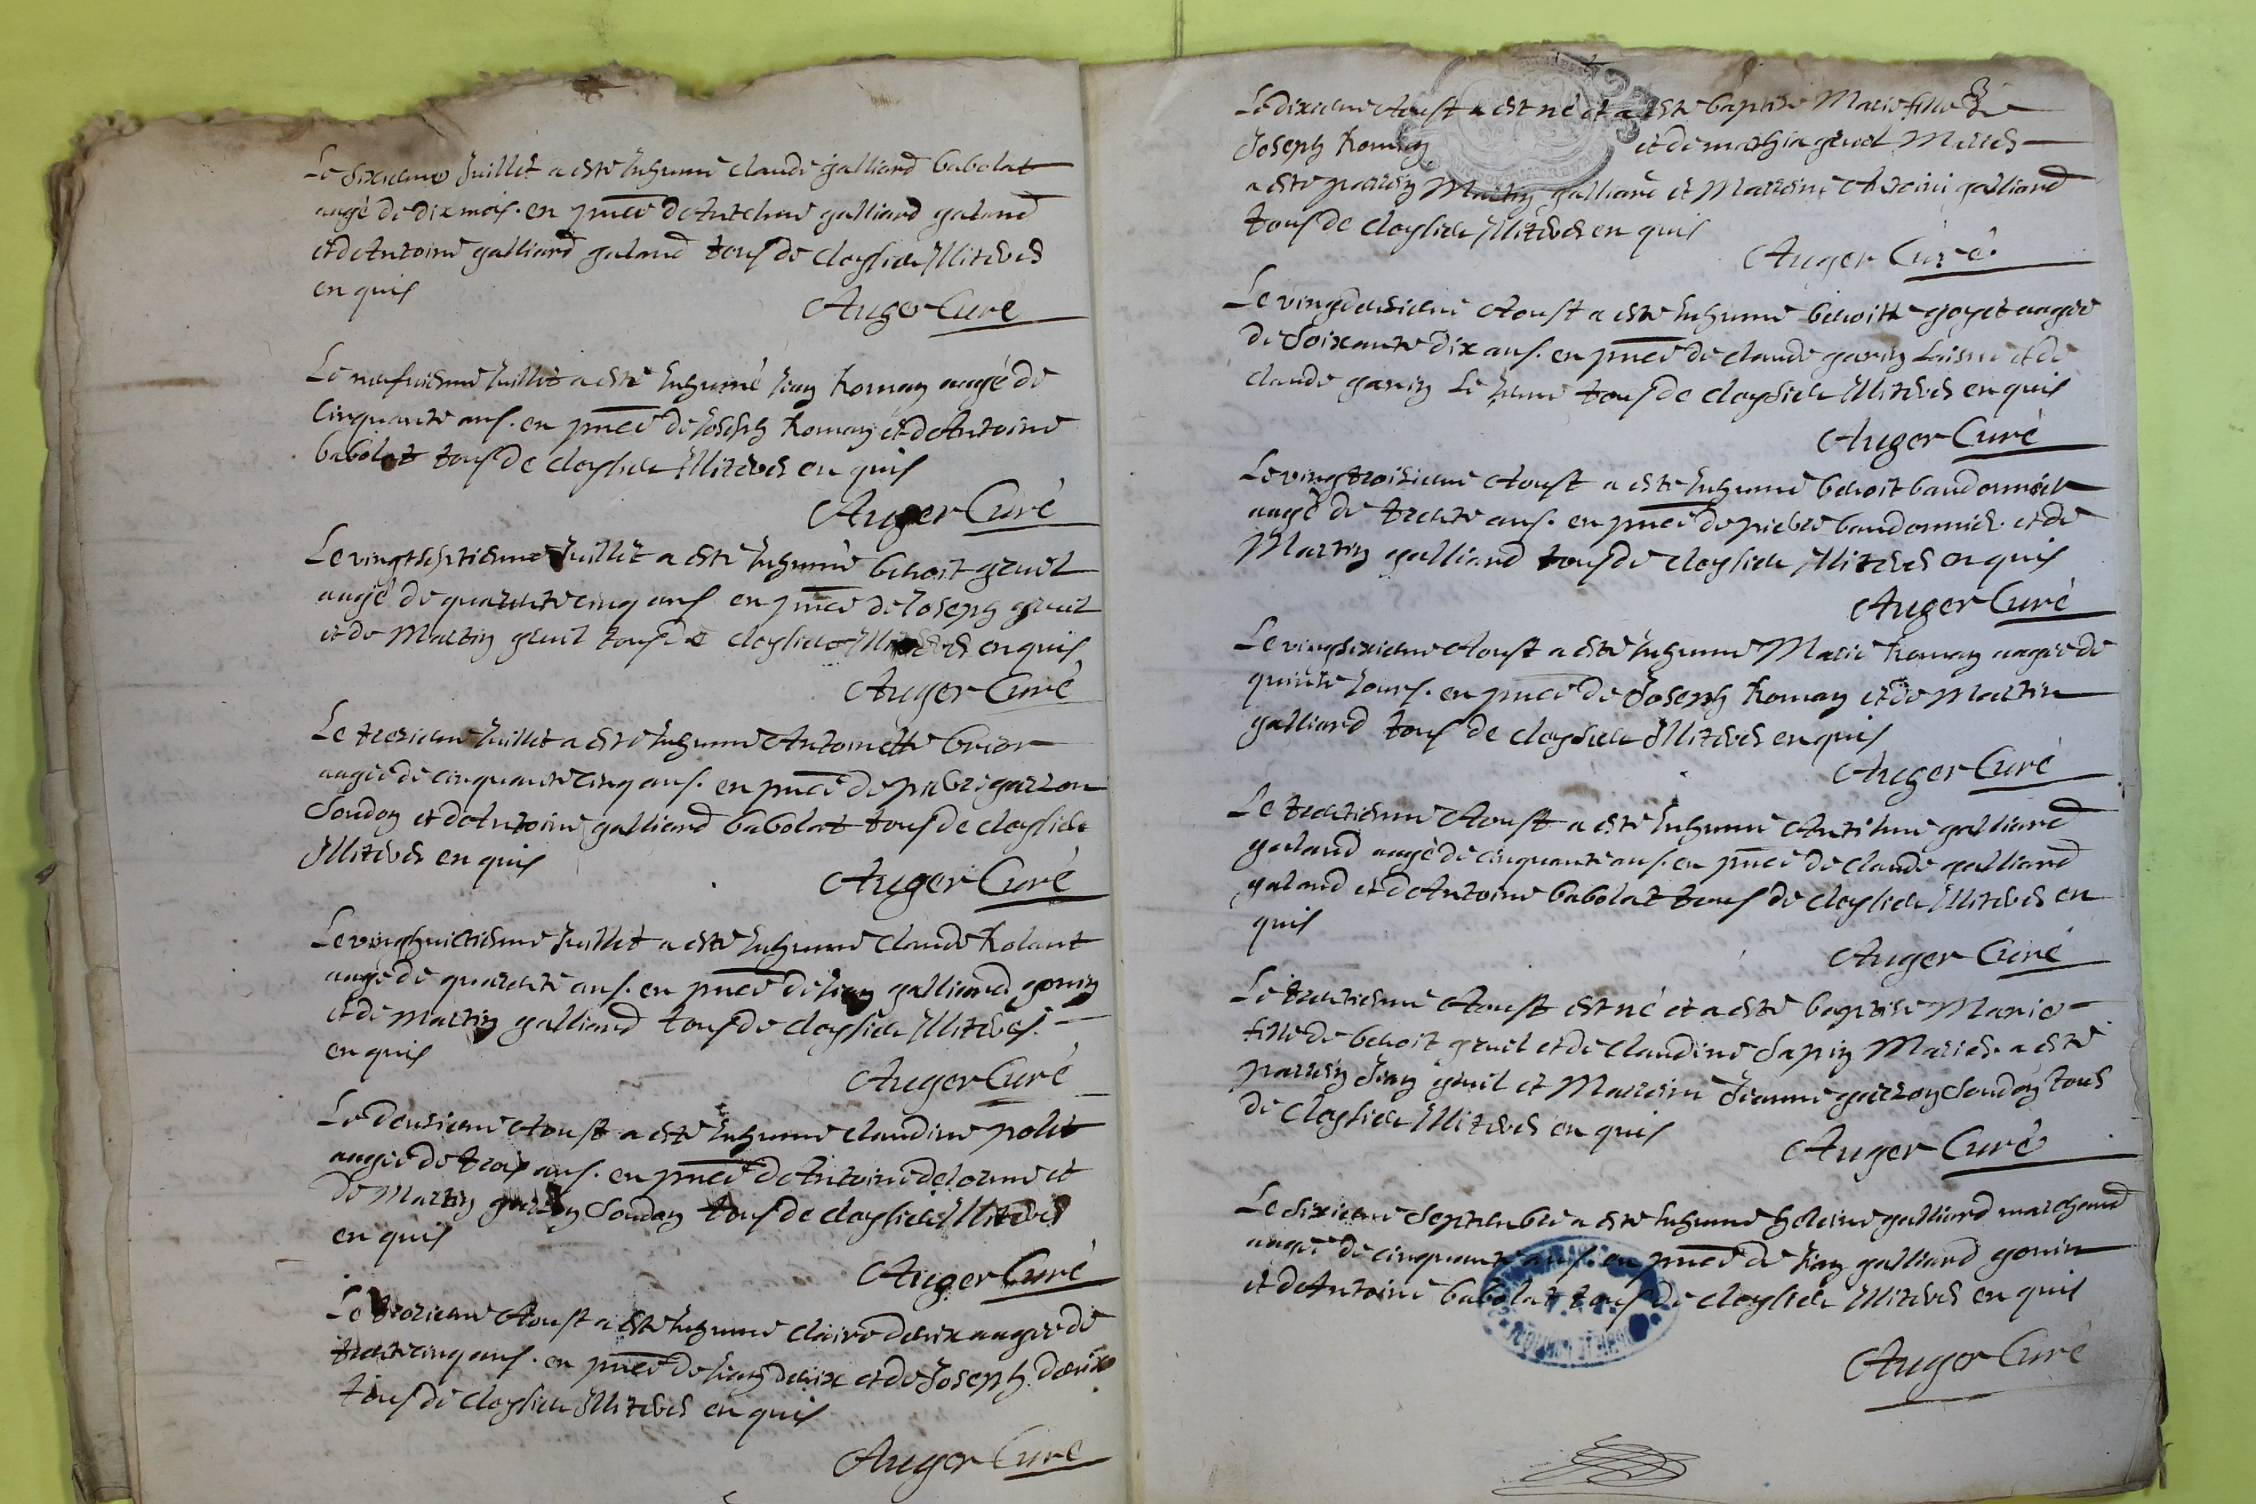 Le sixieme Juillet a esté Inhumé claude galliard babolat
aagé de dix mois. en pnce de Antelme galliard galand
et de Antoine galliard galand tous de cleysieu Illiterés
en quis
Auger Curé
Le neufvieme Juillet a esté Inhumé Jean Roman aagé de
Cinquante ans. en pnce de Joseph Roman et de Antoine
babolat tous de cleysieu Illiterés en quis
Auger Curé
Le vingtseptiesme Juillet a esté Inhumé benoit gruel
aagé de quarente cinq ans en pnce de Joseph gruel
et de Martin gruil tous de cleysieu Illiterés en quis
Auger Curé
Le treisieme Juillet a esté Inhumé Antoinette
aagée de cinquante cinq ans. en pnce de pierre garzon
Soudon et de Antoine galliard babolat tous de cleysieu
Illiterés en quis
Auger Curé
Le vinghuictiesme Juillet a esté Inhumé Claude Rolant
aagé de quarente ans. en pnce de Jean galliard gonin
et de Martin galliard tous de cleysieu Illiterés.
en quis
Auger Curé
Le deusieme Aoust a esté Inhumé claudine polet
aagée de trois ans. en pnce de Antoine delorme et
de Martin garzon Soudon tous de cleysieu Illiterés
en quis
Auger Curé
Le troisieme Aoust a esté Inhumé claire deurix aagée de
trente cinq ans. en pnce de Jean deurix et de Joseph deurix
tous de cleysieu Illiterés en quis
Auger Curé
3
Le dixieme Aoust a est né et a esté baptisé Marie fille de
Joseph Roman et de mathia gruel Mariés
a esté parrin Martin galliard et Marreine Antoine galliard
tous de cleysieu Illiterés en quis
Auger Curé
Le vingdeusieme Aoust a esté Inhumé benoitte goyet aagée
de Soixante dix ans. en pnce de claude garin Laisné et de
claude garin Le Jeune tous de cleysieu Illiterés en quis
Auger Curé
Le vingtroisieme Aoust a esté Inhumé benoit baudonnier
aagé de trente ans. en pnce de pierre baudonnier et de
Martin galliard tous de cleysieu Illiterés en quis
Auger Curé
Le vingsixieme Aoust a esté Inhumé Marie Roman aagée de
quinze Jours. en pnce de Joseph Roman et de Martin
galliard tous de cleysieu Illiterés en quis
Auger Curé
Le trentiesme Aoust a esté Inhumé Antelme galliard
galand aagé de cinquante ans. en pnce de claude galliard
galand et de Antoine babolat tous de cleysieu Illiterés en
quis
Auger Curé
Le trentiesme Aoust est né et a esté baptisé Marie
fille de benoit gruel et de claudine Sapin Mariés. a esté
parrin Jean gruil et Marreine Jeanne garzon Soudon tous
de cleysieu Illiterés en quis
Auger Curé
Le sixieme Septembre a esté Inhumé heleine galliard marchand
aagée de cinquante ans. en pnce de Jean galliard gonin
et de Antoine babolat tous de cleysieu Illiterés en quis
Auger Curé